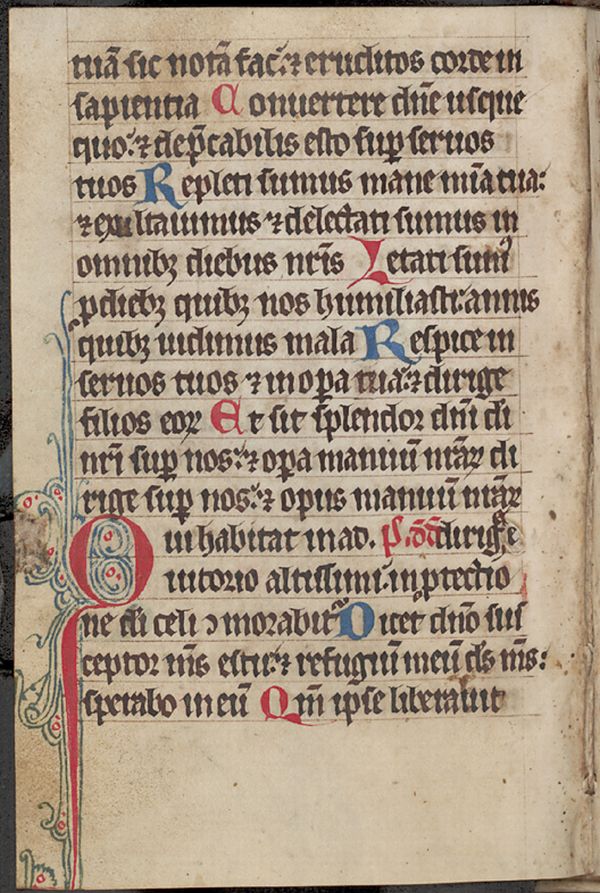 tuā sic notā fac: ⁊ eruditos corde in
sapientia Conuertere dn̄e usque
quo: ⁊ dep̄cabilis esto sup̱ seruos
tuos Repleti sumus mane mīa tua:
⁊ exultauimus ⁊ delectati sumus in
omnibꝫ diebus nr̄is Letati sumꝰ
ꝑ diebꝫ quibꝫ nos humiliasti: annis
quibꝫ uidimus mala Respice in
seruos tuos ⁊ in oꝑa tua: ⁊ dirige
filios eoꝝ Et sit splendor dn̄i dī
nr̄i suꝑ nos: ⁊ oꝑa manuū nr̄aꝝ di
rige suꝑ nos: ⁊ opus manuū nr̄aꝝ
Qui habitat in ad. dirige
iutorio altissimi: in ꝓtectio
ne dī celi ↄmorabit᷑ Dicet dn̄o sus
ceptor m̄s es tu: ⁊ refugiū meū ds̄ m̄s:
sperabo in eū Qm̄ ipse liberauit